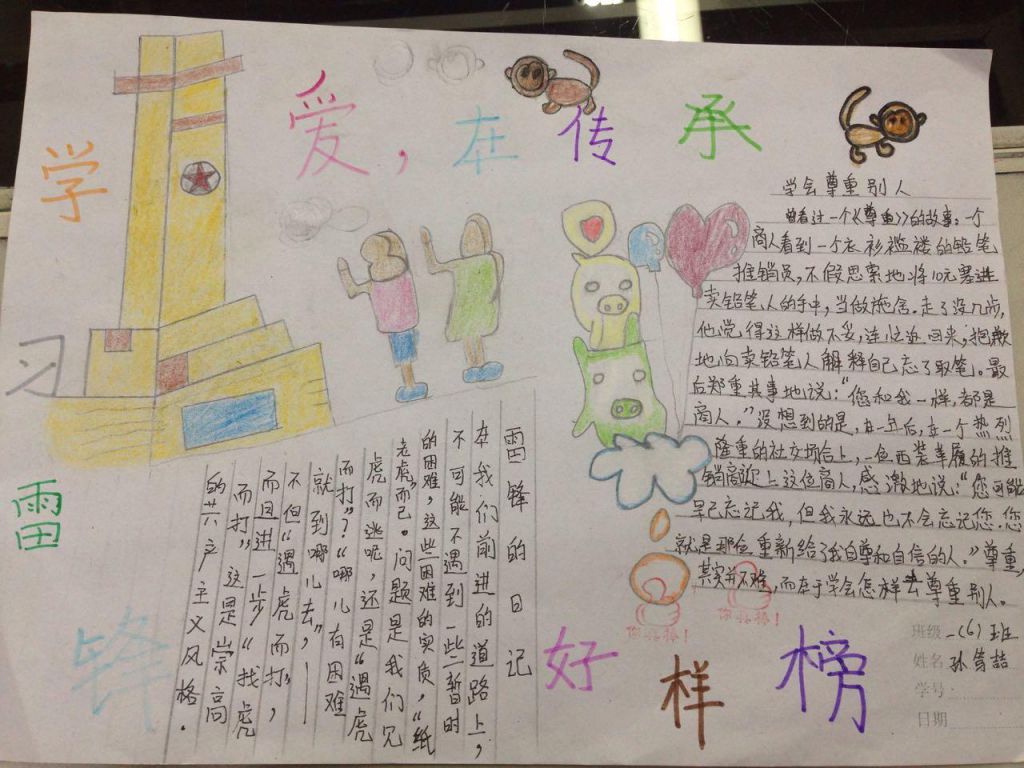 爱，在传承
学
习
雷
锋
好
样
榜
学会尊重别人
曾看过一个《尊重》的故事：一个
商人看到一个衣衫褴褛的铅笔
推销员，不假思索地将10元塞进
卖铅笔人的手中，当做施舍.走了没几步，
他觉得这样做不妥，连忙返回来，抱歉
地向卖铅笔人解释自己忘了取笔。最
后郑重其事地说："您和我一样，都是
商人。"没想到的是，在一年后，在一个热烈
隆重的社交场合上，一色西装革履的推
销商迎上这位商人，感激地说："您可能
早已忘记我，但我永远也不会忘记您.您
就是那位重新给了我自尊和自信的人。"尊重，
其实并不难，而在于学会怎样去尊重别人。
雷锋的日记
在我们前进的道路上，
不可能不遇到一些暂时
的困难，这些困难的实质，"纸
老虎"而已。问题是我们见
虎而逃呢，还是"遇虎
而打"？"哪儿有困难
就到哪儿去"，——
不但"遇虎而打"，
而且进一步"找虎
而打"这是崇高
的共产主义风格.
你好棒！
你好棒！
班级 一(6)班
姓名
学号：
日期